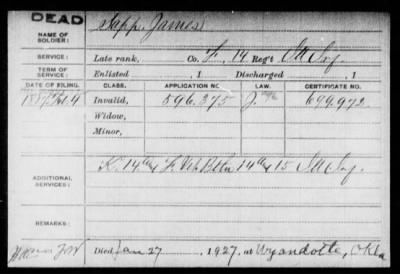 DEAD
NAME OF SOLDIER: Sapp, James
SERVICE: Late rank, Co. F, 14 Reg't Ill Inf.
TERM OF SERVICE: Enlisted , 1 Discharged , 1
DATE OF FILING. CLASS. APPLICATION NO. LAW. CERTIFICATE NO.
1887 Invalid, 596.375 J. 699.972
Widow,
Minor,
ADDITIONAL SERVICES: K. 14 & F. Vet Battn 14 & 15 Ill Inf.
REMARKS:
Died Jan 27 , 1927, at Wyandotte, Okla